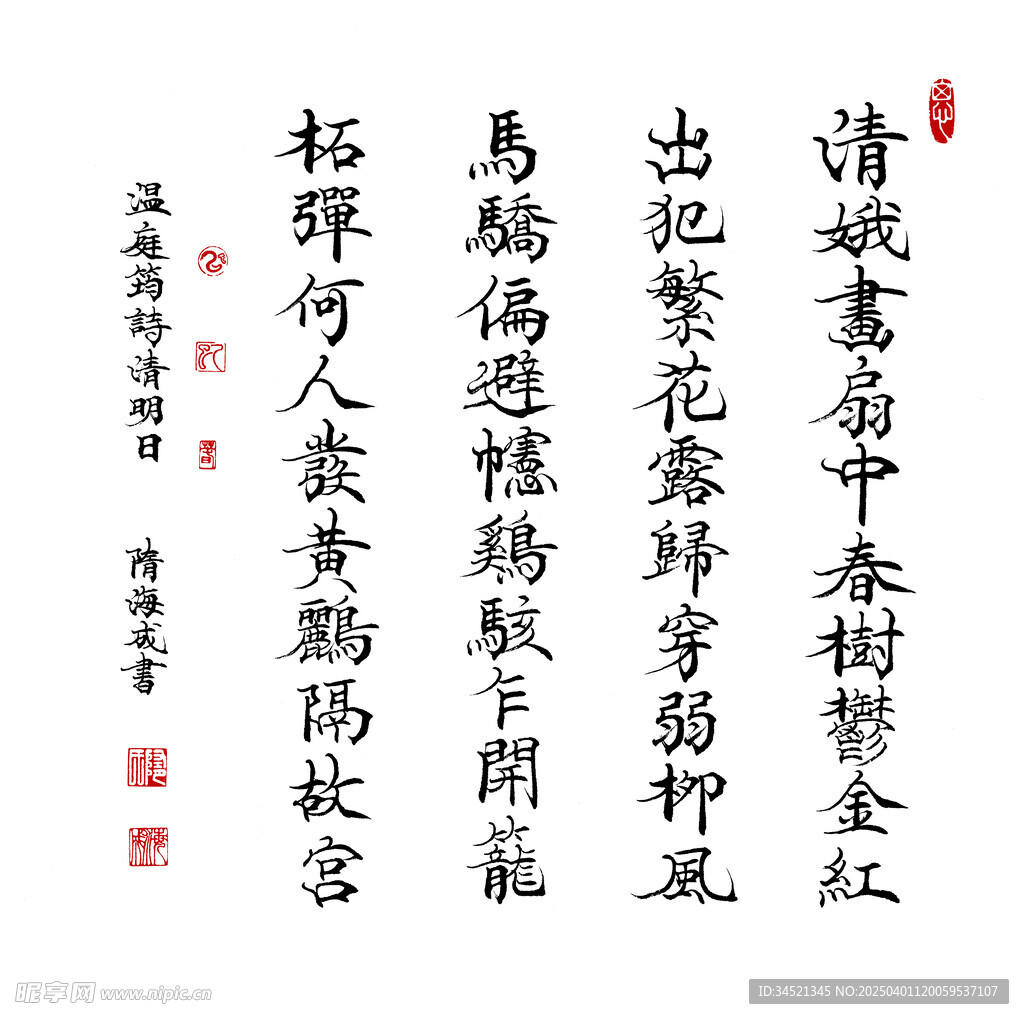 清娥畫扇中春樹鬱金紅
出犯繁花露歸穿弱柳風
馬驕偏避幰鷄駭乍開籠
柘彈何人發黄鸝隔故宫
温庭筠詩清明日
隋海成書
昵享网 www.nipic.cn
ID:34521345 NO:20250401120059537107